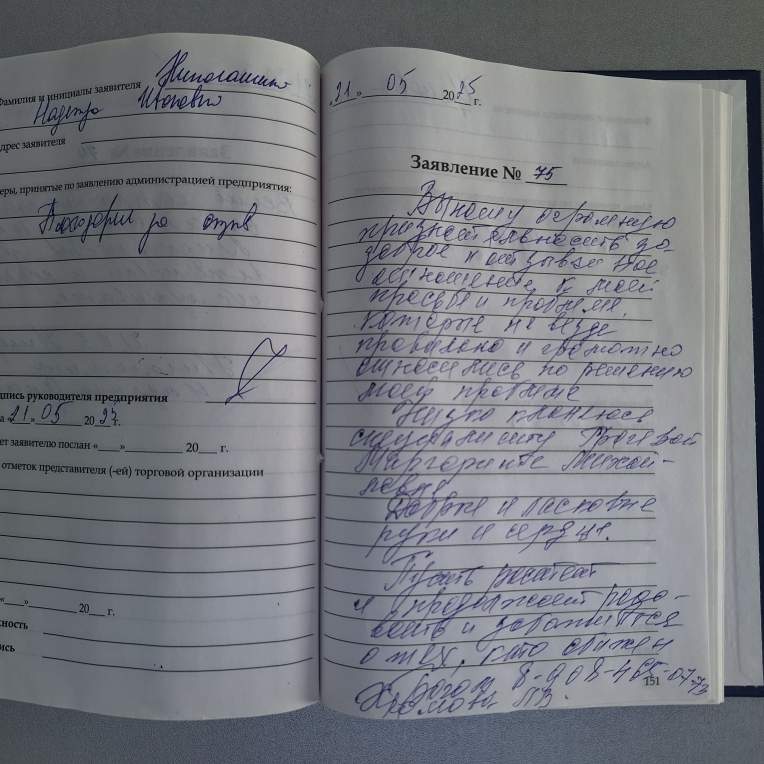 Фамилия и инициалы заявителя
Надежда
дрес заявителя
еры, принятые по заявлению администрацией предприятия:
Благодарим за отзыв
дпись руководителя предприятия
а «21» 05 20 г.
ет заявителю послан «___» 20__ г.
отметок представителя (-ей) торговой организации
«___» 20__ г.
ность
ись
«21» 05 2025 г.
Заявление № 75
Выношу огромную
признательность за
доброе и отзывчивое
отношение к моей
просьбе и проблеме,
которые не везде
правильно и грамотно
относились по решению
моей проблеме
Низко кланяюсь
специалисту
Маргарите Михай-
ловне
Добрые и ласковые
руки и сердце.
Пусть работает
и продолжает радо-
вать и заботиться
о тех, кто обижен
Богом 8-908-465-07-73
151